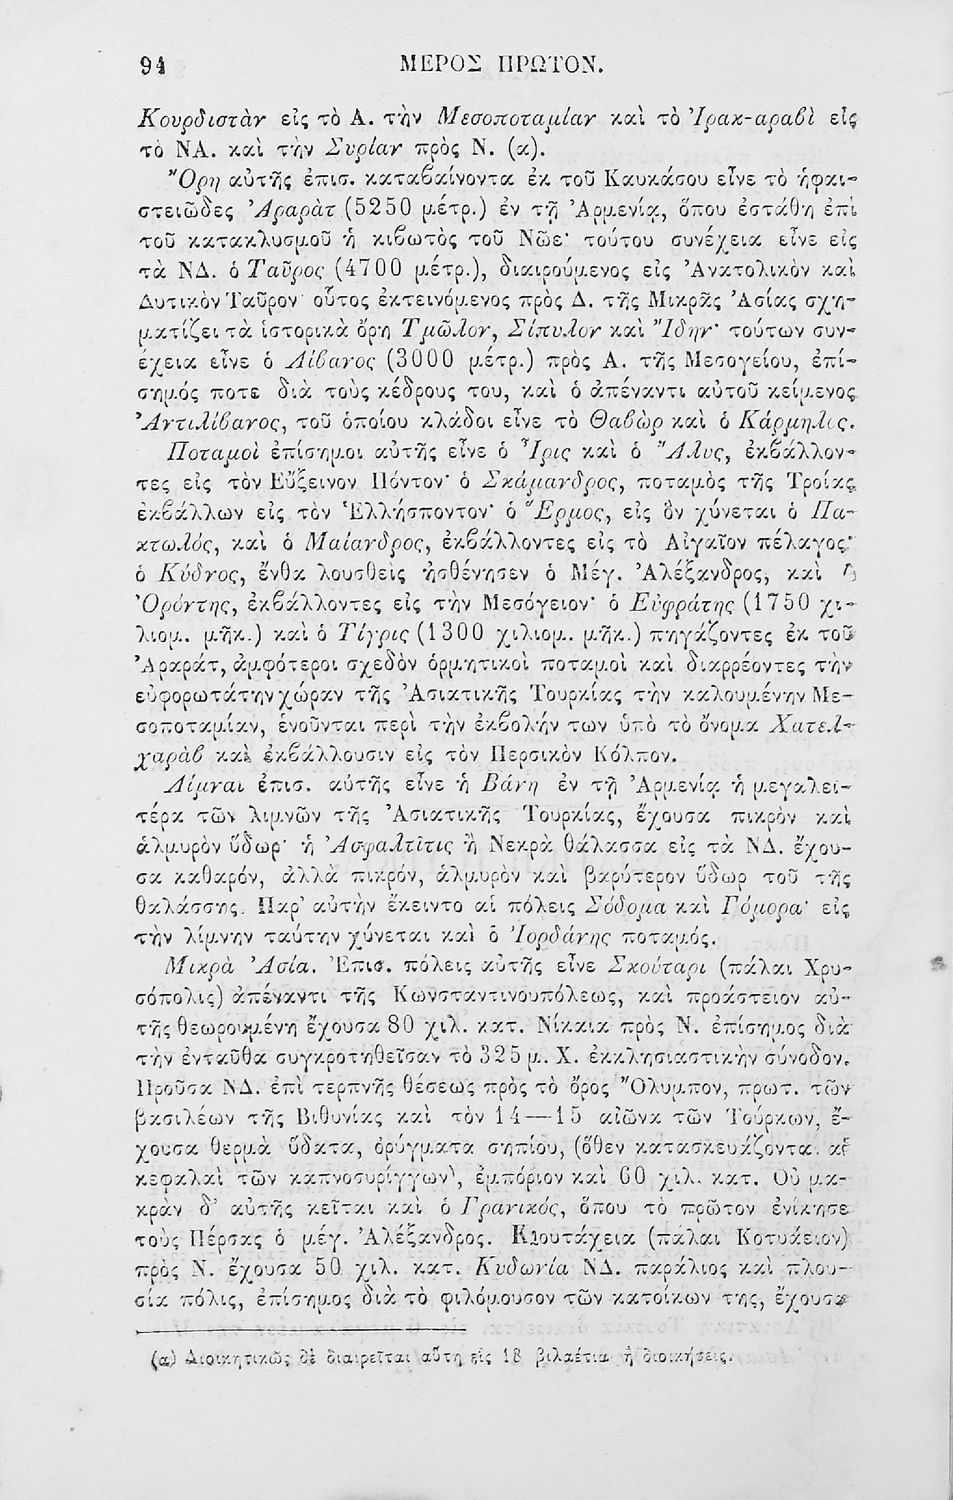 94 ΜΕΡΟΣ ΠΡΩΤΟΝ.
Κουρδιστὰν εἰς τὸ Α. τὴν Μεσοποταμίαν καὶ τὸ Ἰρακ-αραβὶ εἰς
τὸ ΝΑ. καὶ τὴν Συρίαν πρὸς Ν. (α).
Ὄρη αὐτῆς ἐπισ. καταβαίνοντα ἐκ τοῦ Καυκάσου εἶνε τὸ ἡφαι-
στειῶδες Ἀραρὰτ (5250 μέτρ.) ἐν τῇ Ἀρμενίᾳ, ὅπου ἐστάθη ἐπὶ
τοῦ κατακλυσμοῦ ἡ κιβωτὸς τοῦ Νῶε· τούτου συνέχεια εἶνε εἰς
τὰ ΝΔ. ὁ Ταῦρος (4700 μέτρ.), διαιρούμενος εἰς Ἀνατολικὸν καὶ
Δυτικὸν Ταῦρον· οὗτος ἐκτεινόμενος πρὸς Δ. τῆς Μικρᾶς Ἀσίας σχη-
ματίζει τὰ ἱστορικὰ ὄρη Τμῶλον, Σίπυλον καὶ Ἴδην· τούτων συν-
έχεια εἶνε ὁ Λίβανος (3000 μέτρ.) πρὸς Α. τῆς Μεσογείου, ἐπί-
σημός ποτε διὰ τοὺς κέδρους του, καὶ ὁ ἀπέναντι αὐτοῦ κείμενος
Ἀντιλίβανος, τοῦ ὁποίου κλάδοι εἶνε τὸ Θαβὼρ καὶ ὁ Κάρμηλος.
Ποταμοὶ ἐπίσημοι αὐτῆς εἶνε ὁ Ἶρις καὶ ὁ Ἅλυς, ἐκβάλλον-
τες εἰς τὸν Εὔξεινον Πόντον· ὁ Σκάμανδρος, ποταμὸς τῆς Τροίας
ἐκβάλλων εἰς τὸν Ἑλλήσποντον· ὁ Ἕρμος, εἰς ὃν χύνεται ὁ Πα-
κτωλός, καὶ ὁ Μαίανδρος, ἐκβάλλοντες εἰς τὸ Αἰγαῖον πέλαγος·
ὁ Κύδνος, ἔνθα λουσθεὶς ἠσθένησεν ὁ Μέγ. Ἀλέξανδρος, καὶ ὁ
Ὀρόντης, ἐκβάλλοντες εἰς τὴν Μεσόγειον· ὁ Εὐφράτης (1750 χι-
λιομ. μῆκ.) καὶ ὁ Τίγρις (1300 χιλιομ. μῆκ.) πηγάζοντες ἐκ τοῦ
Ἀραράτ, ἀμφότεροι σχεδὸν ὁρμητικοὶ ποταμοὶ καὶ διαρρέοντες τὴν
εὐφορωτάτην χώραν τῆς Ἀσιατικῆς Τουρκίας τὴν καλουμένην Με-
σοποταμίαν, ἑνοῦνται περὶ τὴν ἐκβολήν των ὑπὸ τὸ ὄνομα Χατελ-
χαρὰβ καὶ ἐκβάλλουσιν εἰς τὸν Περσικὸν Κόλπον.
Λίμναι ἐπισ. αὐτῆς εἶνε ἡ Βάνη ἐν τῇ Ἀρμενίᾳ ἡ μεγαλει-
τέρα τῶν λιμνῶν τῆς Ἀσιατικῆς Τουρκίας, ἔχουσα πικρὸν καὶ
ἁλμυρὸν ὕδωρ· ἡ Ἀσφαλτῖτις ἢ Νεκρὰ θάλασσα εἰς τὰ ΝΔ. ἔχου-
σα καθαρόν, ἀλλὰ πικρόν, ἁλμυρὸν καὶ βαρύτερον ὕδωρ τοῦ τῆς
θαλάσσης. Παρ’ αὐτὴν ἔκειντο αἱ πόλεις Σόδομα καὶ Γόμορα· εἰς
τὴν λίμνην ταύτην χύνεται καὶ ὁ Ἰορδάνης ποταμός.
Μικρὰ Ἀσία. Ἐπισ. πόλεις αὐτῆς εἶνε Σκούταρι (πάλαι Χρυ-
σόπολις) ἀπέναντι τῆς Κωνσταντινουπόλεως, καὶ προάστειον αὐ-
τῆς θεωρουμένη ἔχουσα 80 χιλ. κατ. Νίκαια πρὸς Ν. ἐπίσημος διὰ
τὴν ἐνταῦθα συγκροτηθεῖσαν τὸ 325 μ. Χ. ἐκκλησιαστικὴν σύνοδον.
Προῦσα ΝΔ. ἐπὶ τερπνῆς θέσεως πρὸς τὸ ὄρος Ὄλυμπον, πρωτ. τῶν
βασιλέων τῆς Βιθυνίας καὶ τὸν 14—15 αἰῶνα τῶν Τούρκων, ἔ-
χουσα θερμὰ ὕδατα, ὀρύγματα σηπίου, (ὅθεν κατασκευάζονται αἱ
κεφαλαὶ τῶν καπνοσυρίγγων), ἐμπόριον καὶ 60 χιλ. κατ. Οὐ μα-
κρὰν δ’ αὐτῆς κεῖται καὶ ὁ Γρανικός, ὅπου τὸ πρῶτον ἐνίκησε
τοὺς Πέρσας ὁ μέγ. Ἀλέξανδρος. Κιουτάχεια (πάλαι Κοτυάειον)
πρὸς Ν. ἔχουσα 50 χιλ. κατ. Κυδωνία ΝΔ. παράλιος καὶ πλου-
σία πόλις, ἐπίσημος διὰ τὸ φιλόμουσον τῶν κατοίκων της, ἔχουσα
(α) Διοικητικῶς δὲ διαιρεῖται αὕτη εἰς 18 βιλαέτια ἢ διοικήσεις.